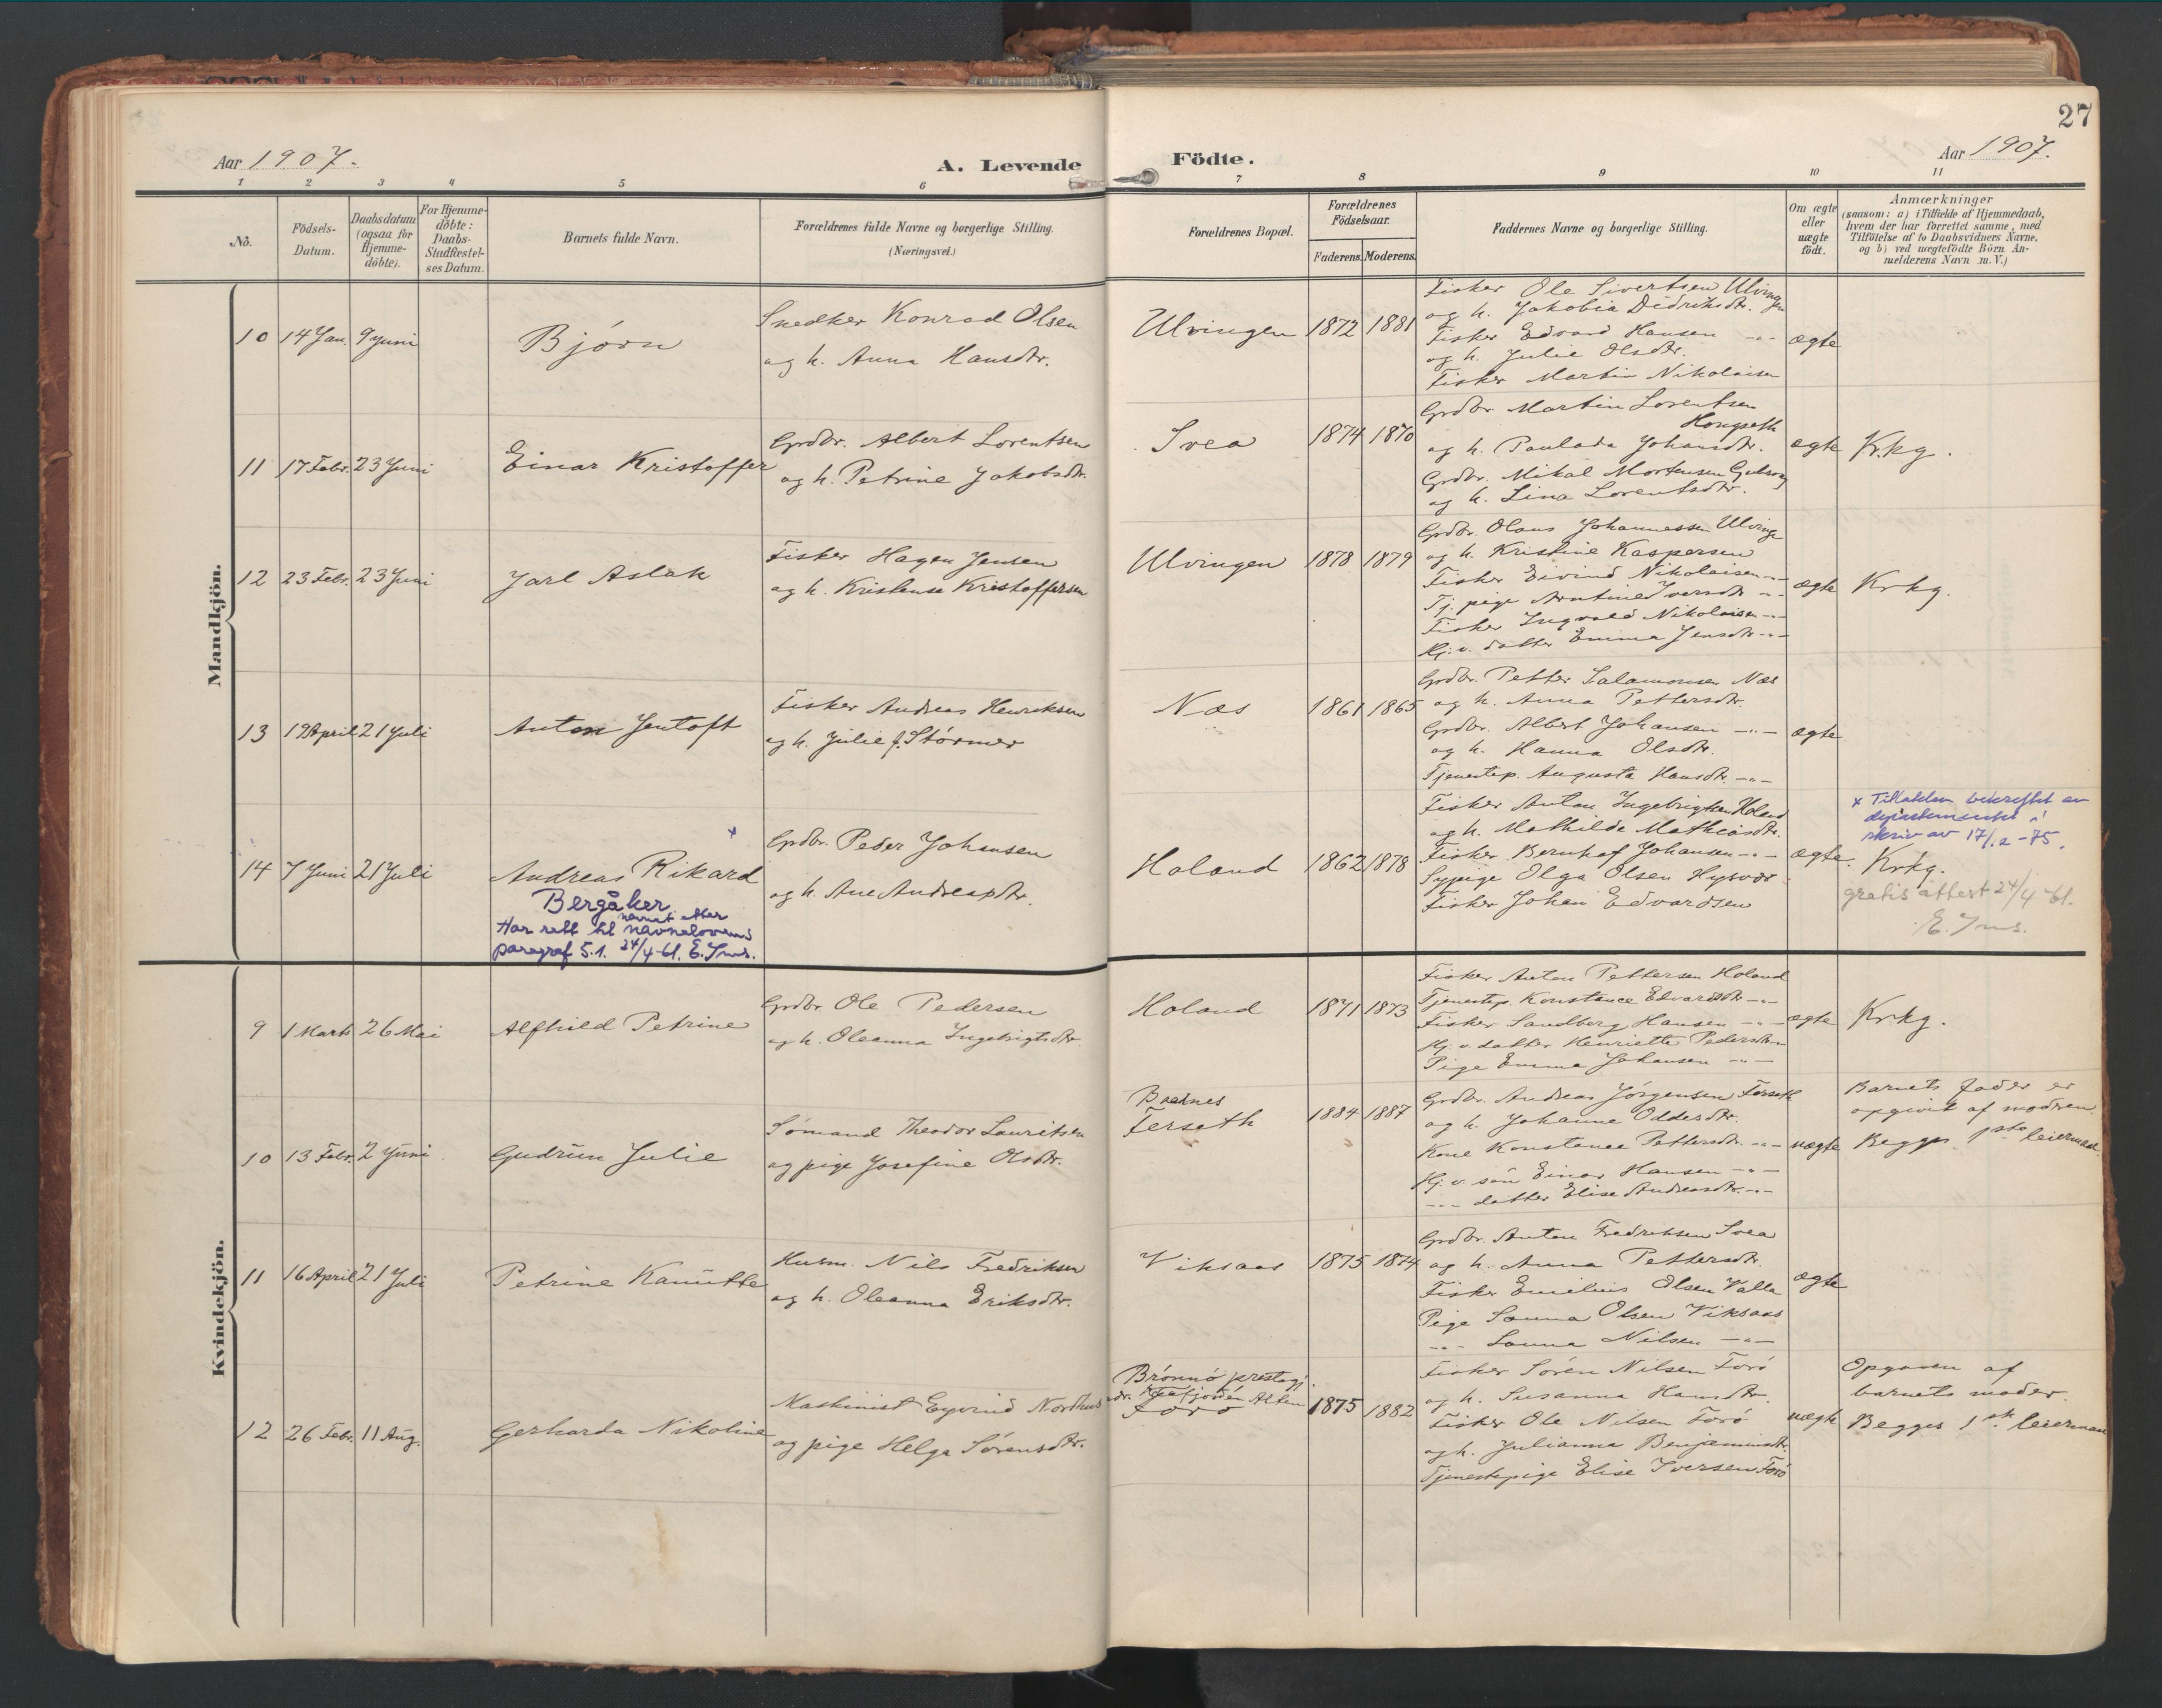 27
Aar 1907.
A. Levende
Födte.
Aar 1907.
1 2 3 4 5 6 7 8 9 10 11
No.
Födsels-
Datum.
Daabsdatum
(ogsaa for
Hjemme-
döbte).
For Hjemme-
döbte:
Daabs-
Stadfæstel-
ses Datum.
Barnets fulde Navn.
Forældrenes fulde Navne og borgerlige Stilling.
(Næringsvei.)
Forældrenes Bopæl.
Forældrenes
Födselsaar.
Faderens. Moderens.
Faddernes Navne og borgerlige Stilling.
Om ægte
eller
uægte
födt.
Anmærkninger
(saasom: a) i Tilfælde af Hjemmedaab,
hvem der har forrettet samme, med
Tilföielse af to Daabsvidners Navne,
og b) ved uægtefödte Börn An-
melderens Navn m. V.)
Mandkjön.
10 14 Jan. 9 Juni
Bjørn
Snedker Konrad Olsen
og h. Anna Hansdtr.
Ulvingen 1872 1881
Fisker Ole Sivertsen Ulvingen
og h. Jakobia Didriksdtr.
Fisker Edvard Hansen -"-
og h. Julie Olsdtr.
Fisker Martin Nikolaisen
ægte
11 17 Febr. 23 Juni
Einar Kristoffer
Grdbr. Albert Lorentsen
og h. Petrine Jakobsdtr.
Svea 1874 1870
Grdbr. Martin Lorentsen
Hongseth
og h. Paulada Johansdtr.
Grdbr. Mikal Mortensen
og h. Lina Lorentsdtr.
ægte Krkg.
12 23 Febr. 23 Juni
Jarl Aslak
Fisker Hagen Jensen
og h. Kristense Kristoffersen
Ulvingen 1878 1879
Grdbr. Olaus Johannessen Ulvinge
og h. Kristine Kaspersen
Fisker Eivind Nikolaisen -"-
Tj. pige Arntine Iversdtr -"-
Fisker Ingvald Nikolaisen -"-
Hj. v. datter Emma Jensdtr -"-
ægte Krkg.
13 19 April 21 Juli
Anton Jentoft
Fisker Andreas Henriksen
og h. Julie f. Störmer
Næs 1861 1865
Grdbr. Petter Salamonsen Næs
og h. Anna Pettersdtr.
Grdbr. Albert Johansen -"-
og h. Hanna Olsdtr.
Tjenestep. Augusta Hansdtr. -"-
ægte
14 7 Juni 21 Juli
Andreas Rikard x
Bergåker
Har rett til navnet etter navnelovens
paragraf 5.1. 24/4-61. E. Jns.
Grdbr. Peder Johansen
og h. Ane Andreasdtr.
Holand 1862 1878
Fisker Anton Ingebrigtsen Holand
og h. Mathilde Mathiasdtr.
Fisker Bernhof Johansen -"-
Sypige Olga Olsen Hysvær
Fisker Johan Edvardsen
ægte.
x Tillatelsen bekreftet av
departementet i
skriv av 17/12-75.
Krkg.
gratis attest 24/4-61.
E. Jns.
Kvindekjön.
9 1 Marts 26 Mai
Alfhild Petrine
Grdbr Ole Pedersen
og h. Oleanna Ingebrigtsdtr
Holand 1871 1873
Fisker Anton Pettersen Holand
Tjenestep. Konstance Edvardsdtr -"-
Fisker Sandberg Hansen -"-
Hj. v. datter Henriette Pedersdtr -"-
Pige Emma Johansen -"-
ægte Krkg.
10 13 Febr. 2 Juni
Gudrun Julie
Sömand Theodor Lauritsen
og pige Josefine Olsdtr.
Forseth 1884 1887
Grdbr. Andreas Jörgensen Forseth
og h. Johanne Oddersdtr.
Kone Konstance Pettersdtr. -"-
Hj. v. sön Einar Hansen -"-
-"- datter Elise Andreasdtr. -"-
uægte
Barnets fader er
opgivet af modren.
Begges 1ste leiermaal.
11 16 April 21 Juli
Petrine Kanutte
Husm. Nils Fredriksen
og h. Oleanna Eriksdtr.
Viksaas 1875 1874
Grdbr. Anton Fredriksen Svea
og h. Anna Pettersdtr.
Fisker Emelius Olsen Valla
Pige Sanna Olsen Viksaas
-"- Sanna Nilsen -"-
ægte
12 26 Febr. 11 Aug.
Gerharda Nikoline
Maskinist Eyvind Nordhus
og pige Helga Sörensdtr.
Brönnö prestegj.
Alten
Forö
1875 1882
Fisker Sören Nilsen Forö
og h. Susanna Hansdtr.
Fisker Ole Nilsen Forö
og h. Julianna Benjaminsdtr.
Tjenestepige Elise Iversen Forö
uægte
Opgaven af
barnets moder.
Begges 1ste leiermaal